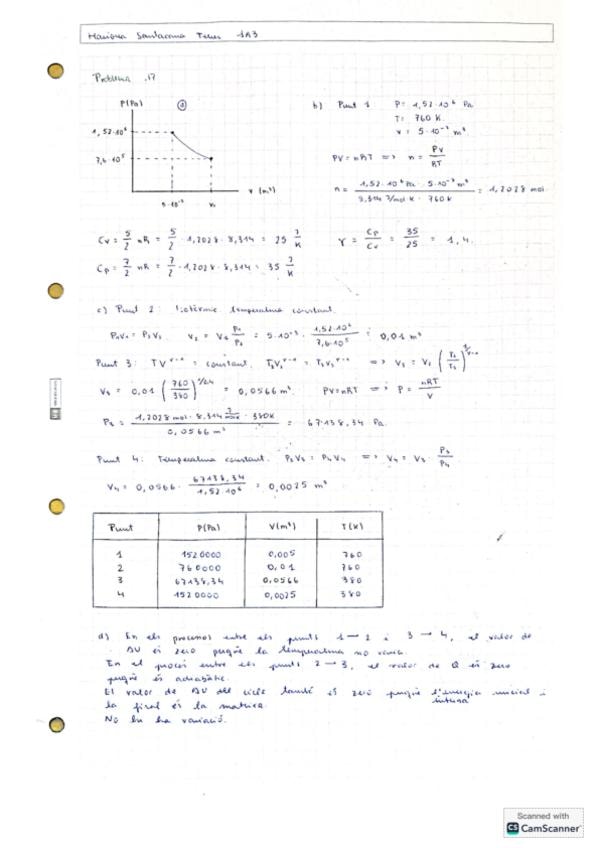 Mariona Santacana Teres 1A3
Problema 17
P(Pa) a)
1,52·10⁶
7,6·10⁵
5·10⁻³ V₂ V (m³)
b) Punt 1 P = 1,52·10⁶ Pa
T = 760 K
V = 5·10⁻³ m³
PV = nRT => n = PV/RT
n = 1,52·10⁶ Pa · 5·10⁻³ m³ / 8,314 J/mol K · 760 K = 1,2028 mol
Cv = 5/2 nR = 5/2 · 1,2028 · 8,314 = 25 J/K γ = Cp/Cv = 35/25 = 1,4
Cp = 7/2 nR = 7/2 · 1,2028 · 8,314 = 35 J/K
c) Punt 2: Isotèrmic temperatura constant.
P₁V₁ = P₂V₂ V₂ = V₁ P₁/P₂ = 5·10⁻³ · 1,52·10⁶/7,6·10⁵ = 0,01 m³
Punt 3: TV^γ-1 = constant. T₂V₂^γ-1 = T₃V₃^γ-1 => V₃ = V₂ (T₂/T₃)^1/γ-1
V₃ = 0,01 (760/380)^1/0,4 = 0,0566 m³ PV=nRT => P = nRT/V
P₃ = 1,2028 mol · 8,314 J/molK · 380K / 0,0566 m³ = 67138,34 Pa.
Punt 4: Temperatura constant. P₃V₃ = P₄V₄ => V₄ = V₃ · P₃/P₄
V₄ = 0,0566 · 67138,34/1,52·10⁶ = 0,0025 m³
Punt P(Pa) V(m³) T(K)
1 1520000 0,005 760
2 760000 0,01 760
3 67138,34 0,0566 380
4 1520000 0,0025 380
d) En els processos entre els punts 1→2 i 3→4, el valor de
ΔU és zero perquè la temperatura no varia.
En el procés entre els punts 2→3, el valor de Q és zero
perquè és adiabàtic.
El valor de ΔU del cicle també és zero perquè l'energia inicial i
interna
la final és la mateixa.
No hi ha variació.
Scanned with
CS CamScanner